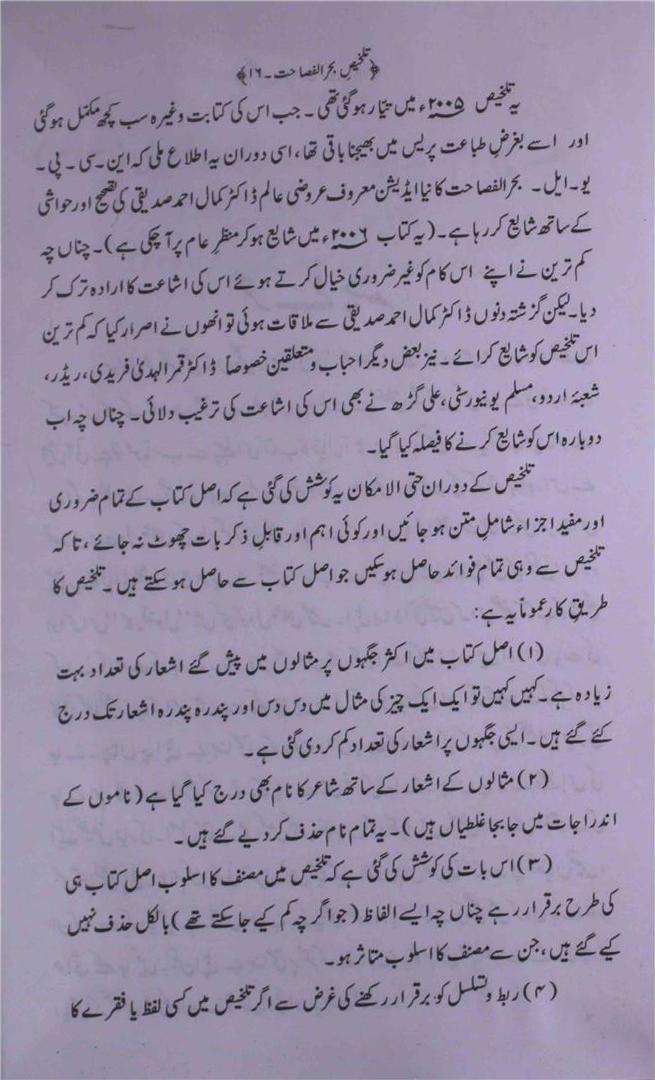 ﴿تلخیصِ بحر الفصاحت۔۱۶﴾
یہ تلخیص ۲۰۰۵ء میں تیار ہوگئی تھی۔ جب اس کی کتابت وغیرہ سب کچھ مکمل ہوگئی
اور اسے بغرضِ طباعت پریس میں بھیجنا باقی تھا، اسی دوران یہ اطلاع ملی کہ این۔سی۔پی۔
یو۔ایل۔ بحر الفصاحت کا نیا ایڈیشن معروف عروضی عالم ڈاکٹر کمال احمد صدیقی کی تصحیح اور حواشی
کے ساتھ شایع کر رہا ہے۔(یہ کتاب ۲۰۰۶ء میں شایع ہوکر منظرِ عام پر آچکی ہے)۔چناں چہ
کم ترین نے اپنے اس کام کو غیر ضروری خیال کرتے ہوئے اس کی اشاعت کا ارادہ ترک کر
دیا۔لیکن گزشتہ دنوں ڈاکٹر کمال احمد صدیقی سے ملاقات ہوئی تو انھوں نے اصرار کیا کہ کم ترین
اس تلخیص کو شایع کرائے۔نیز بعض دیگر احباب و متعلقین خصوصاً ڈاکٹر قمر الہدیٰ فریدی، ریڈر،
شعبۂ اردو، مسلم یونیورسٹی، علی گڑھ نے بھی اس کی اشاعت کی ترغیب دلائی۔ چناں چہ اب
دوبارہ اس کو شایع کرنے کا فیصلہ کیا گیا۔
تلخیص کے دوران حتی الامکان یہ کوشش کی گئی ہے کہ اصل کتاب کے تمام ضروری
اور مفید اجزاء شاملِ متن ہو جائیں اور کوئی اہم اور قابلِ ذکر بات چھوٹ نہ جائے، تاکہ
تلخیص سے وہی تمام فوائد حاصل ہوسکیں جو اصل کتاب سے حاصل ہوسکتے ہیں۔تلخیص کا
طریقِ کار عموماً یہ ہے:
(۱) اصل کتاب میں اکثر جگہوں پر مثالوں میں پیش گئے اشعار کی تعداد بہت
زیادہ ہے۔کہیں کہیں تو ایک ایک چیز کی مثال میں دس دس اور پندرہ پندرہ اشعار تک درج
کئے گئے ہیں۔ایسی جگہوں پر اشعار کی تعداد کم کردی گئی ہے۔
(۲) مثالوں کے اشعار کے ساتھ شاعر کا نام بھی درج کیا گیا ہے (ناموں کے
اندراجات میں جابجا غلطیاں ہیں)۔یہ تمام نام حذف کردیے گئے ہیں۔
(۳) اس بات کی کوشش کی گئی ہے کہ تلخیص میں مصنف کا اسلوب اصل کتاب ہی
کی طرح برقرار رہے چناں چہ ایسے الفاظ (جو اگرچہ کم کیے جاسکتے تھے) بالکل حذف نہیں
کیے گئے ہیں، جن سے مصنف کا اسلوب متاثر ہو۔
(۴) ربط و تسلسل کو برقرار رکھنے کی غرض سے اگر تلخیص میں کسی لفظ یا فقرے کا